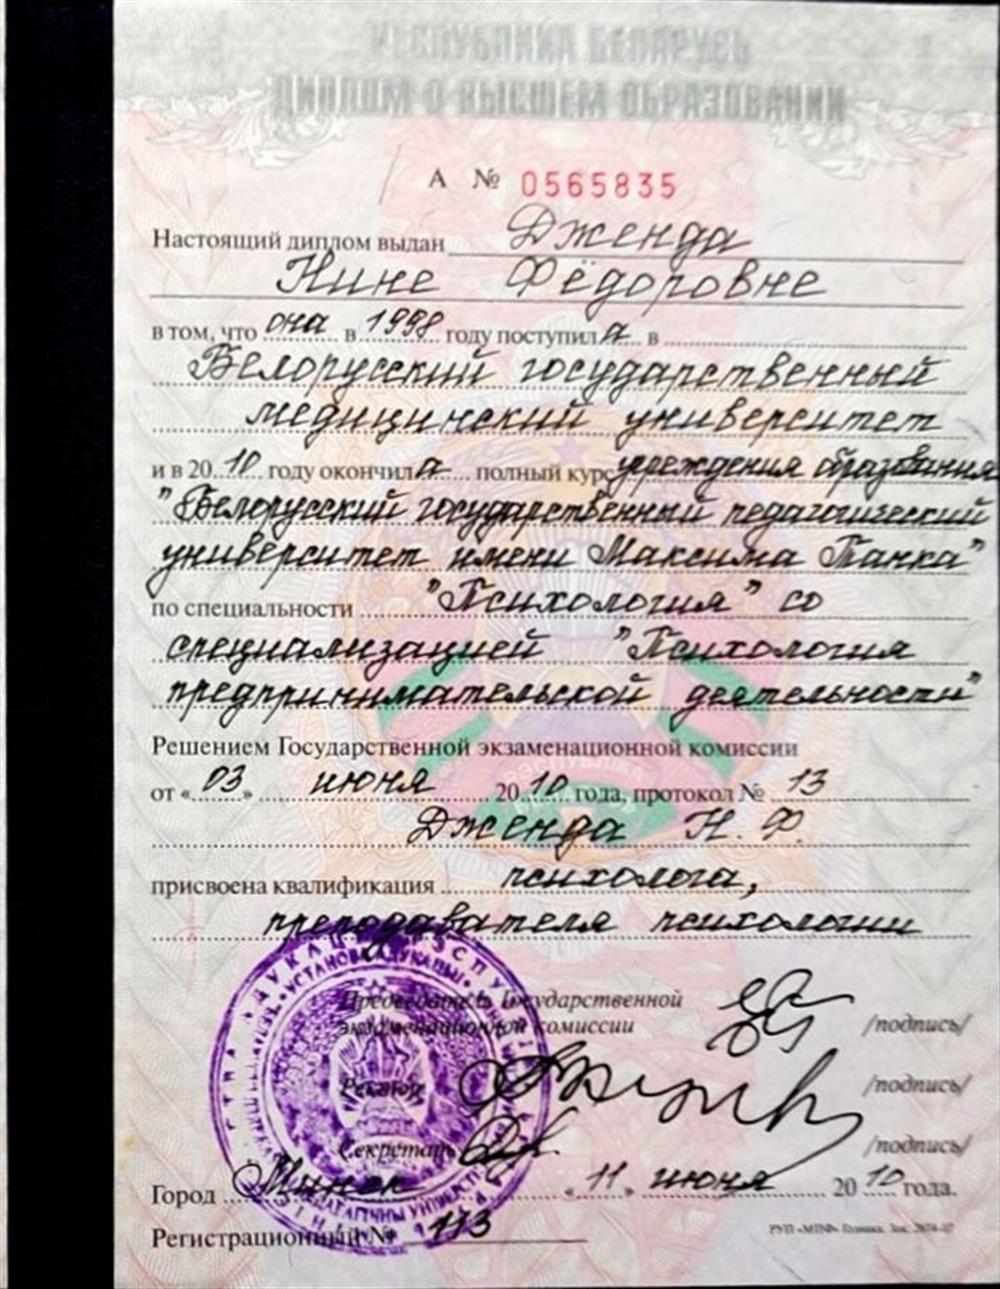 РЭСПУБЛІКА БЕЛАРУСЬ
ДИПЛОМ О ВЫСШЕМ ОБРАЗОВАНИИ
А № 0565835
Настоящий диплом выдан Дженда
Нине Фёдоровне
в том, что она в 1998 году поступила в
Белорусский государственный
медицинский университет
и в 2010 году окончила полный курс учреждения образования
"Белорусский государственный педагогический
университет имени Максима Танка"
по специальности "Психология" со
специализацией "Психология
предпринимательской деятельности"
Решением Государственной экзаменационной комиссии
от «03» июня 2010 года, протокол № 13
Дженда Н. Ф.
присвоена квалификация психолога,
преподавателя психологии
Председатель Государственной
экзаменационной комиссии /подпись/
Ректор /подпись/
Секретарь /подпись/
Город Минск «11» июня 2010 года.
Регистрационный № 113
РУП «МПФ» Гознака. Зак.